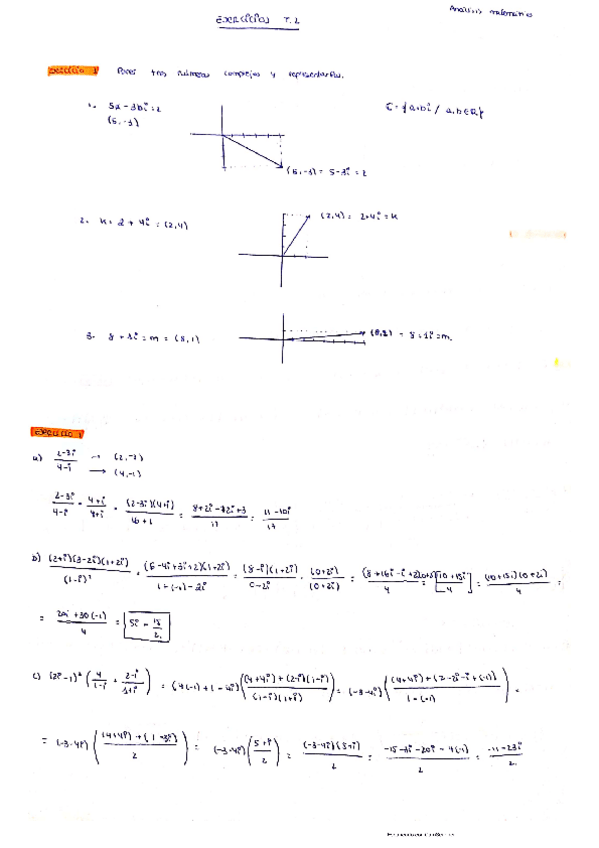 Análisis matemático
EJERCICIOS T.2
Ejercicio 1 Poner tres números complejos y representarlos.
1. 5 - 3i = z
(5, -3)
ℂ = { a + bi / a, b ∈ ℝ }
(5, -3) = 5 - 3i = z
2. k = 2 + 4i = (2,4)
(2,4) = 2+4i = k
3. 8 + 1i = m = (8,1)
= 8 + 1i = m.
Ejercicio
a) (2-3i)/(4-i) → (2,-3)
→ (4,-1)
(2-3i)/(4-i) · (4+i)/(4+i) = (2-3i)(4+i)/(16+1) = = (11-10i)/17
b) (2+i)(3-2i)(1+2i)/(1-i)² = (6-4i+3i+2)(1+2i)/(1+(-1)-2i) = (8-i)(1+2i)/(0-2i) · (0+2i)/(0+2i) = = (10+15i)(0+2i)/4 =
= (20i+30(-1))/4 = 5i - 15/2
c) (2i-1)² (4/(1-i) + (2-i)/(1+i)) = (4(-1)+1-4i) ((4+4i)+(2-i)(1-i))/((1-i)(1+i)) = (-3-4i) ((4+4i)+(2-2i-i+(-1)))/(1-(-1)) =
= (-3-4i) ((4+4i)+(1-3i))/2 = (-3-4i) (5+i)/2 = (-3-4i)(5+i)/2 = (-15-3i-20i-4(-1))/2 = (-11-23i)/2